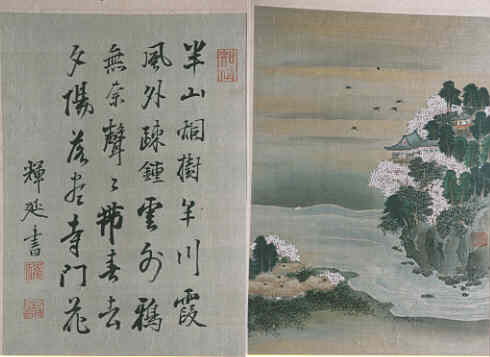 半山烟樹半川霞
風外疎鍾雲外鴉
無奈聲々帶春去
夕陽落尽寺門花
輝延書